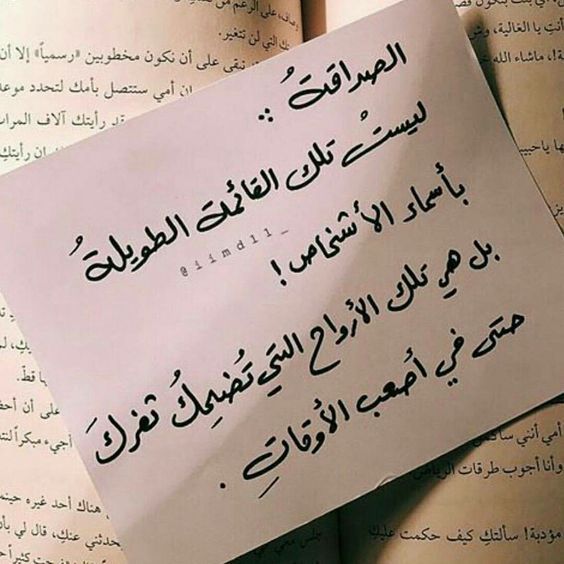 الصداقةُ :
ليستُ تلك القائمة الطويلةُ
@iimd11_
بأسماء الأشخاص !
بل هي تلك الأرواح التي تُضحِكُ ثغركَ
حتى في أصعب الأوقاتِ .
على الرغم من
التي لن تتغير.
نبقى على أن نكون مخطوبين «رسمياً» إلا أن
ان أمي ستتصل بأمك لتحدد موعد
رأيتك آلاف المرات
ان رأيتك
أنتِ يا الغالية،
ة!، ماشاء الله
على أن
أجيء مبكراً
هناك أحد غيره
تحدثني عنكِ، قال لي
أمي أنني
وأنا أجوب طرقات الرياض
مؤدبة! سألتكِ كيف حكمت عليكِ